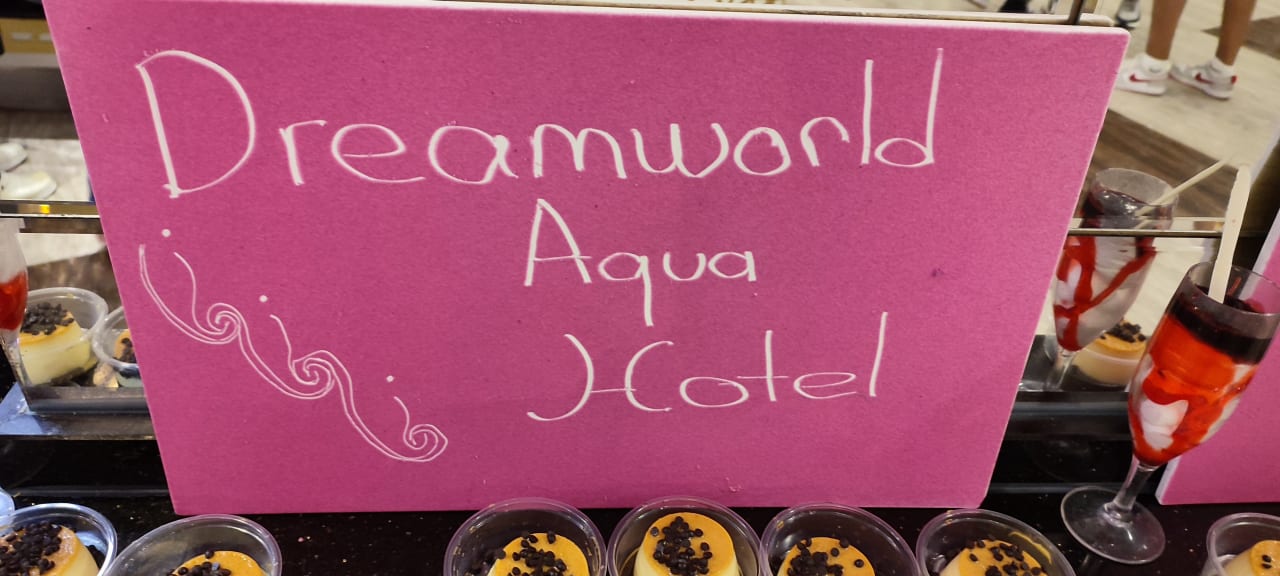 Dreamworld
Aqua
Hotel